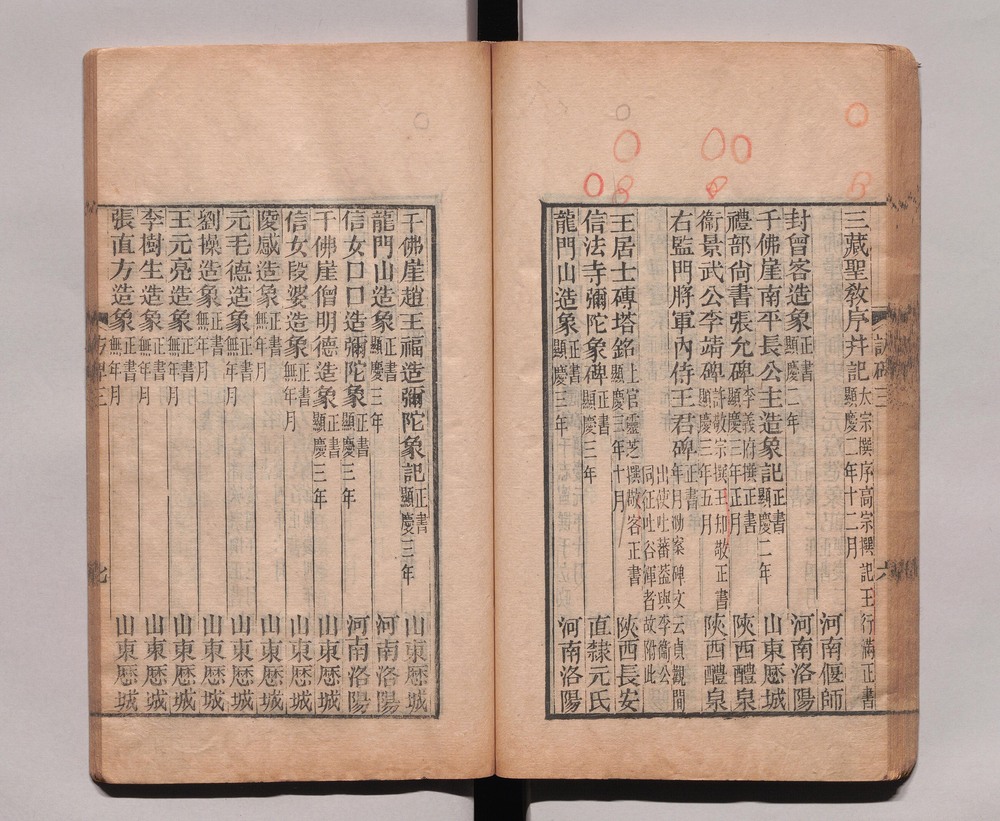 三藏聖敎序幷記 太宗撰序高宗撰記王行滿正書 顯慶二年十二月 河南偃師
封曾客造象 正書 顯慶二年 河南洛陽
千佛崖南平長公主造象記 正書 顯慶二年 山東歷城
禮部尙書張允碑 李義府撰正書 顯慶三年正月 陝西醴泉
衞景武公李靖碑 許敬宗撰王知敬正書 顯慶三年五月 陝西醴泉
右監門將軍內侍王君碑 正書 年月泐案碑文云貞觀間
出使吐蕃葢與李衞公同征吐谷渾者故附此
王居士磚塔銘 上官靈芝撰敬客正書 顯慶三年十月 陝西長安
信法寺彌陀象碑 正書 顯慶三年 直隸元氏
龍門山造象 正書 顯慶三年 河南洛陽
千佛崖趙王福造彌陀象記 正書 顯慶三年 山東歷城
龍門山造象 正書 顯慶三年 河南洛陽
信女口口造彌陀象 正書 顯慶三年 河南洛陽
千佛崖僧明德造象 正書 顯慶三年 山東歷城
信女段婆造象 正書 無年月 山東歷城
陵感造象 正書 無年月 山東歷城
元毛德造象 正書 無年月 山東歷城
劉操造象 正書 無年月 山東歷城
王元亮造象 正書 無年月 山東歷城
李樹生造象 正書 無年月 山東歷城
張直方造象 正書 無年月 山東歷城